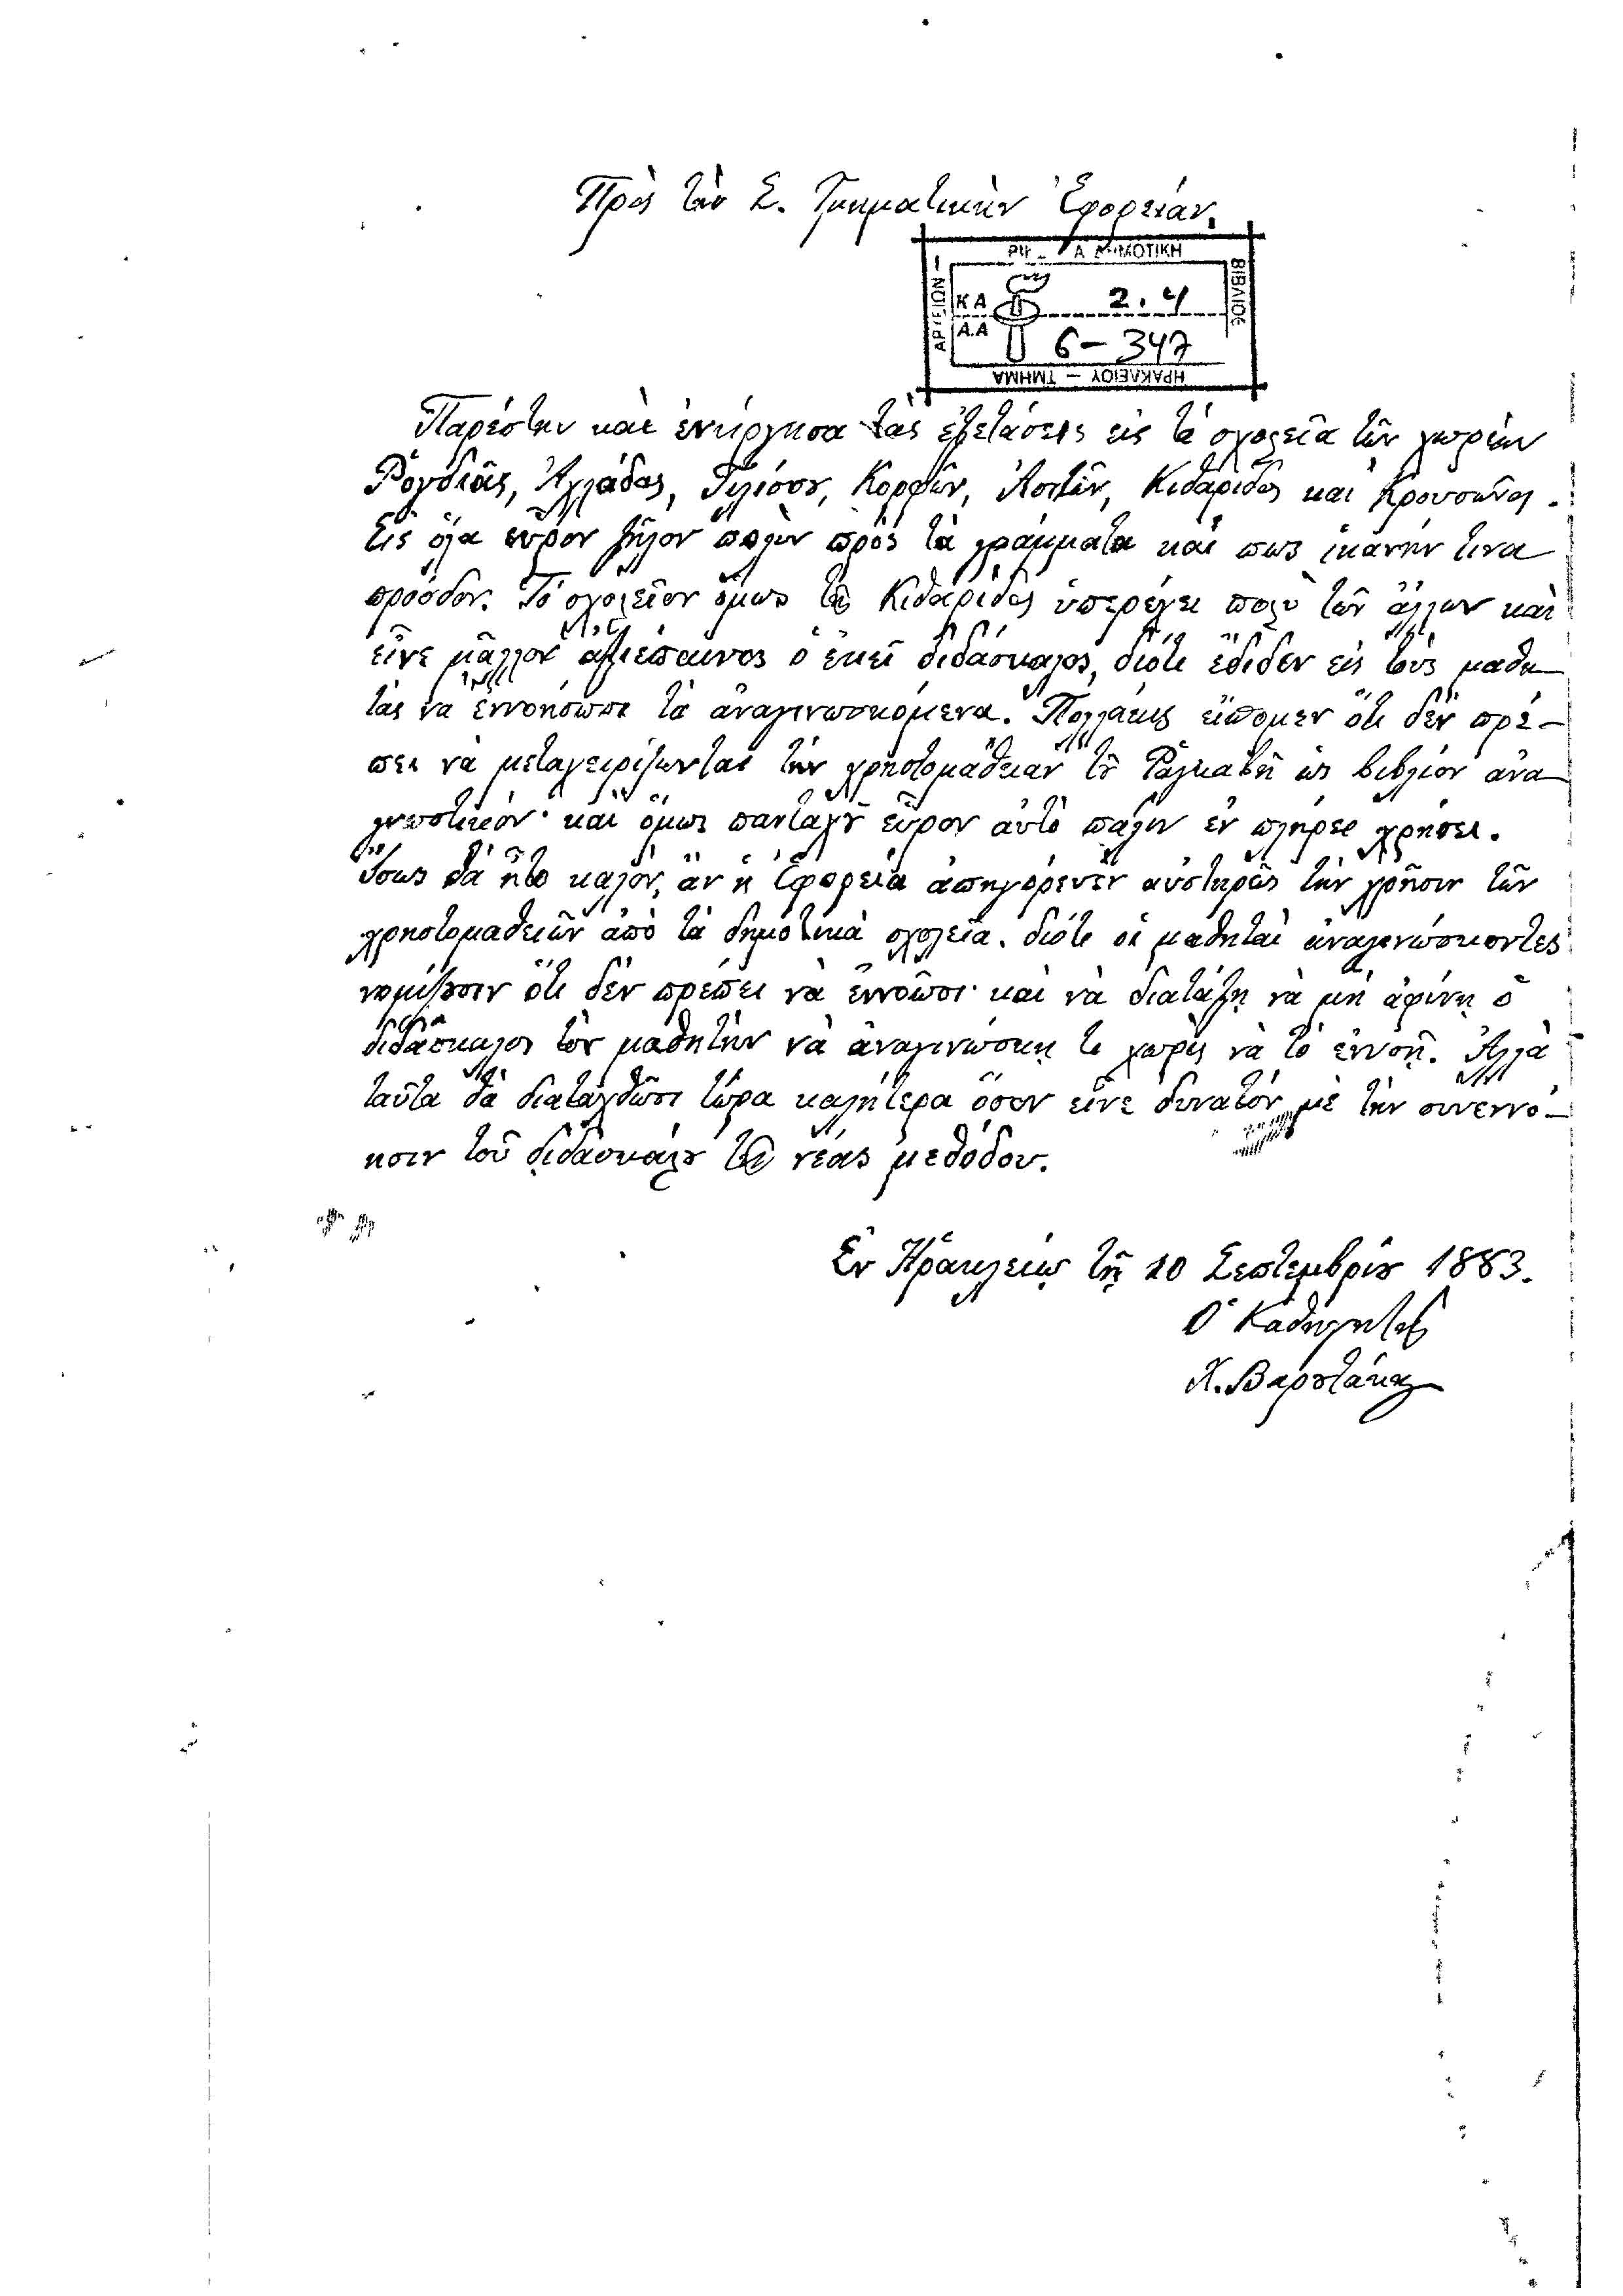 Πρὸς τὴν Σ. Τμηματικὴν Ἐφορείαν.
ΔΗΜΟΤΙΚΗ
ΒΙΒΛΙΟΘ
ΑΡΧΕΙΩΝ
Κ Α 2.4
Α.Α 6-347
ΗΡΑΚΛΕΙΟΥ – ΤΜΗΜΑ
Παρέστην καὶ ἐνήργησα τὰς ἐξετάσεις εἰς τὰ σχολεῖα τῶν χωρίων
Ῥογδιᾶς, Ἀχλάδας, Τυλίσου, Κορφῶν, Ἀσιτῶν, Κιθαρίδας καὶ Κρουσῶνος.
Εἰς ὅλα εὗρον ζῆλον πολὺν πρὸς τὰ γράμματα καί πως ἱκανήν τινα
πρόοδον. Τὸ σχολεῖον ὅμως τῆς Κιθαρίδας ὑπερέχει πολὺ τῶν ἄλλων καὶ
εἶνε μᾶλλον ἀξιέπαινος ὁ ἐκεῖ διδάσκαλος, διότι ἔδιδεν εἰς τοὺς μαθη
τὰς νὰ ἐννοήσωσι τὰ ἀναγινωσκόμενα. Πολλάκις εἴπομεν ὅτι δὲν πρέ-
πει νὰ μεταχειρίζωνται τὴν χρηστομάθειαν τοῦ Ῥαγκαβῆ ὡς βιβλίον ἀνα
γνωστικόν· καὶ ὅμως πανταχοῦ εὗρον αὐτὸ πάλιν ἐν πλήρει χρήσει.
Ἴσως θὰ ἦτο καλόν, ἂν ἡ Ἐφορεία ἀπηγόρευεν αὐστηρῶς τὴν χρῆσιν τῶν
χρηστομαθειῶν ἀπὸ τὰ δημοτικὰ σχολεῖα. διότι οἱ μαθηταὶ ἀναγινώσκοντες
νομίζουσιν ὅτι δὲν πρέπει νὰ ἐννοῶσι· καὶ νὰ διατάξῃ νὰ μὴ ἀφίνῃ ὁ
διδάσκαλος τὸν μαθητὴν νὰ ἀναγινώσκῃ τι χωρὶς νὰ τὸ ἐννοῇ. Ἀλλὰ
ταῦτα θὰ διαταχθῶσι τώρα καλήτερα ὅσον εἶνε δυνατὸν μὲ τὴν συνεννό-
ησιν τοῦ διδασκάλου τῆς νέας μεθόδου.
Ἐν Ἡρακλείῳ τῇ 10 Σεπτεμβρίου 1883.
Ὁ Καθηγητής